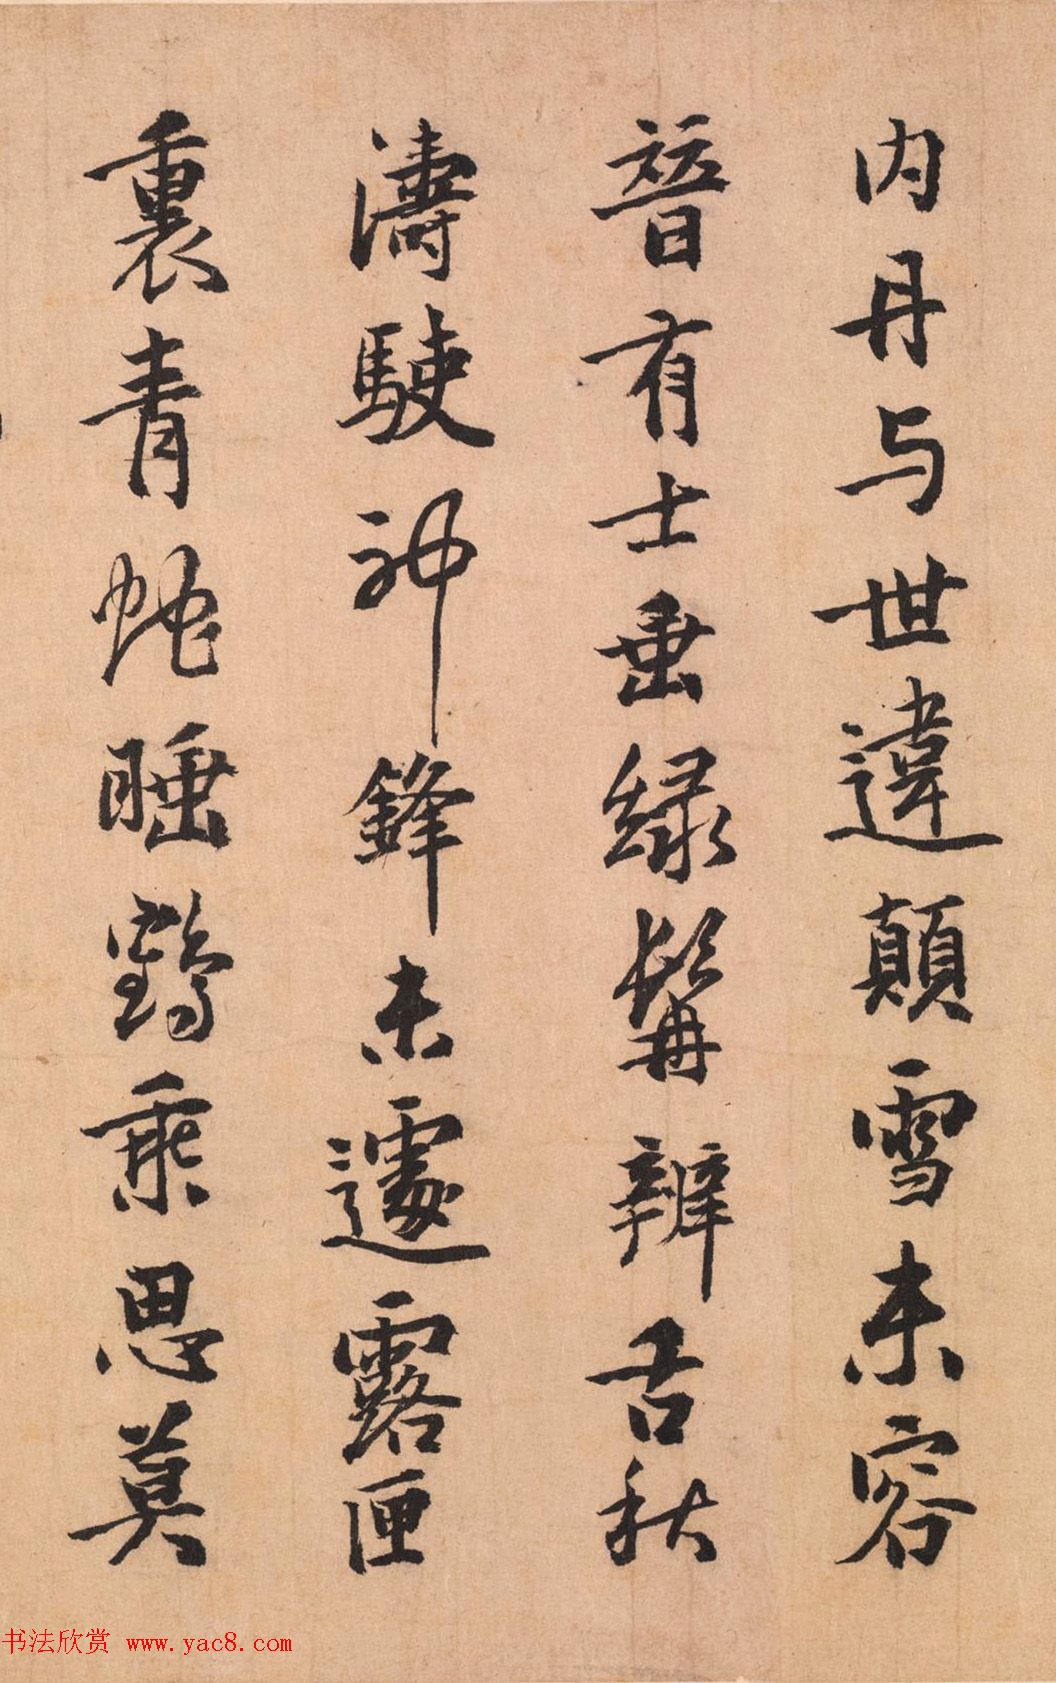 内丹与世違顛雪未容
簪有士垂緑髯辨舌秋
濤駛神鋒未遽露匣
裏青蛇睡鶴乘思莫
书法欣赏 www.yac8.com